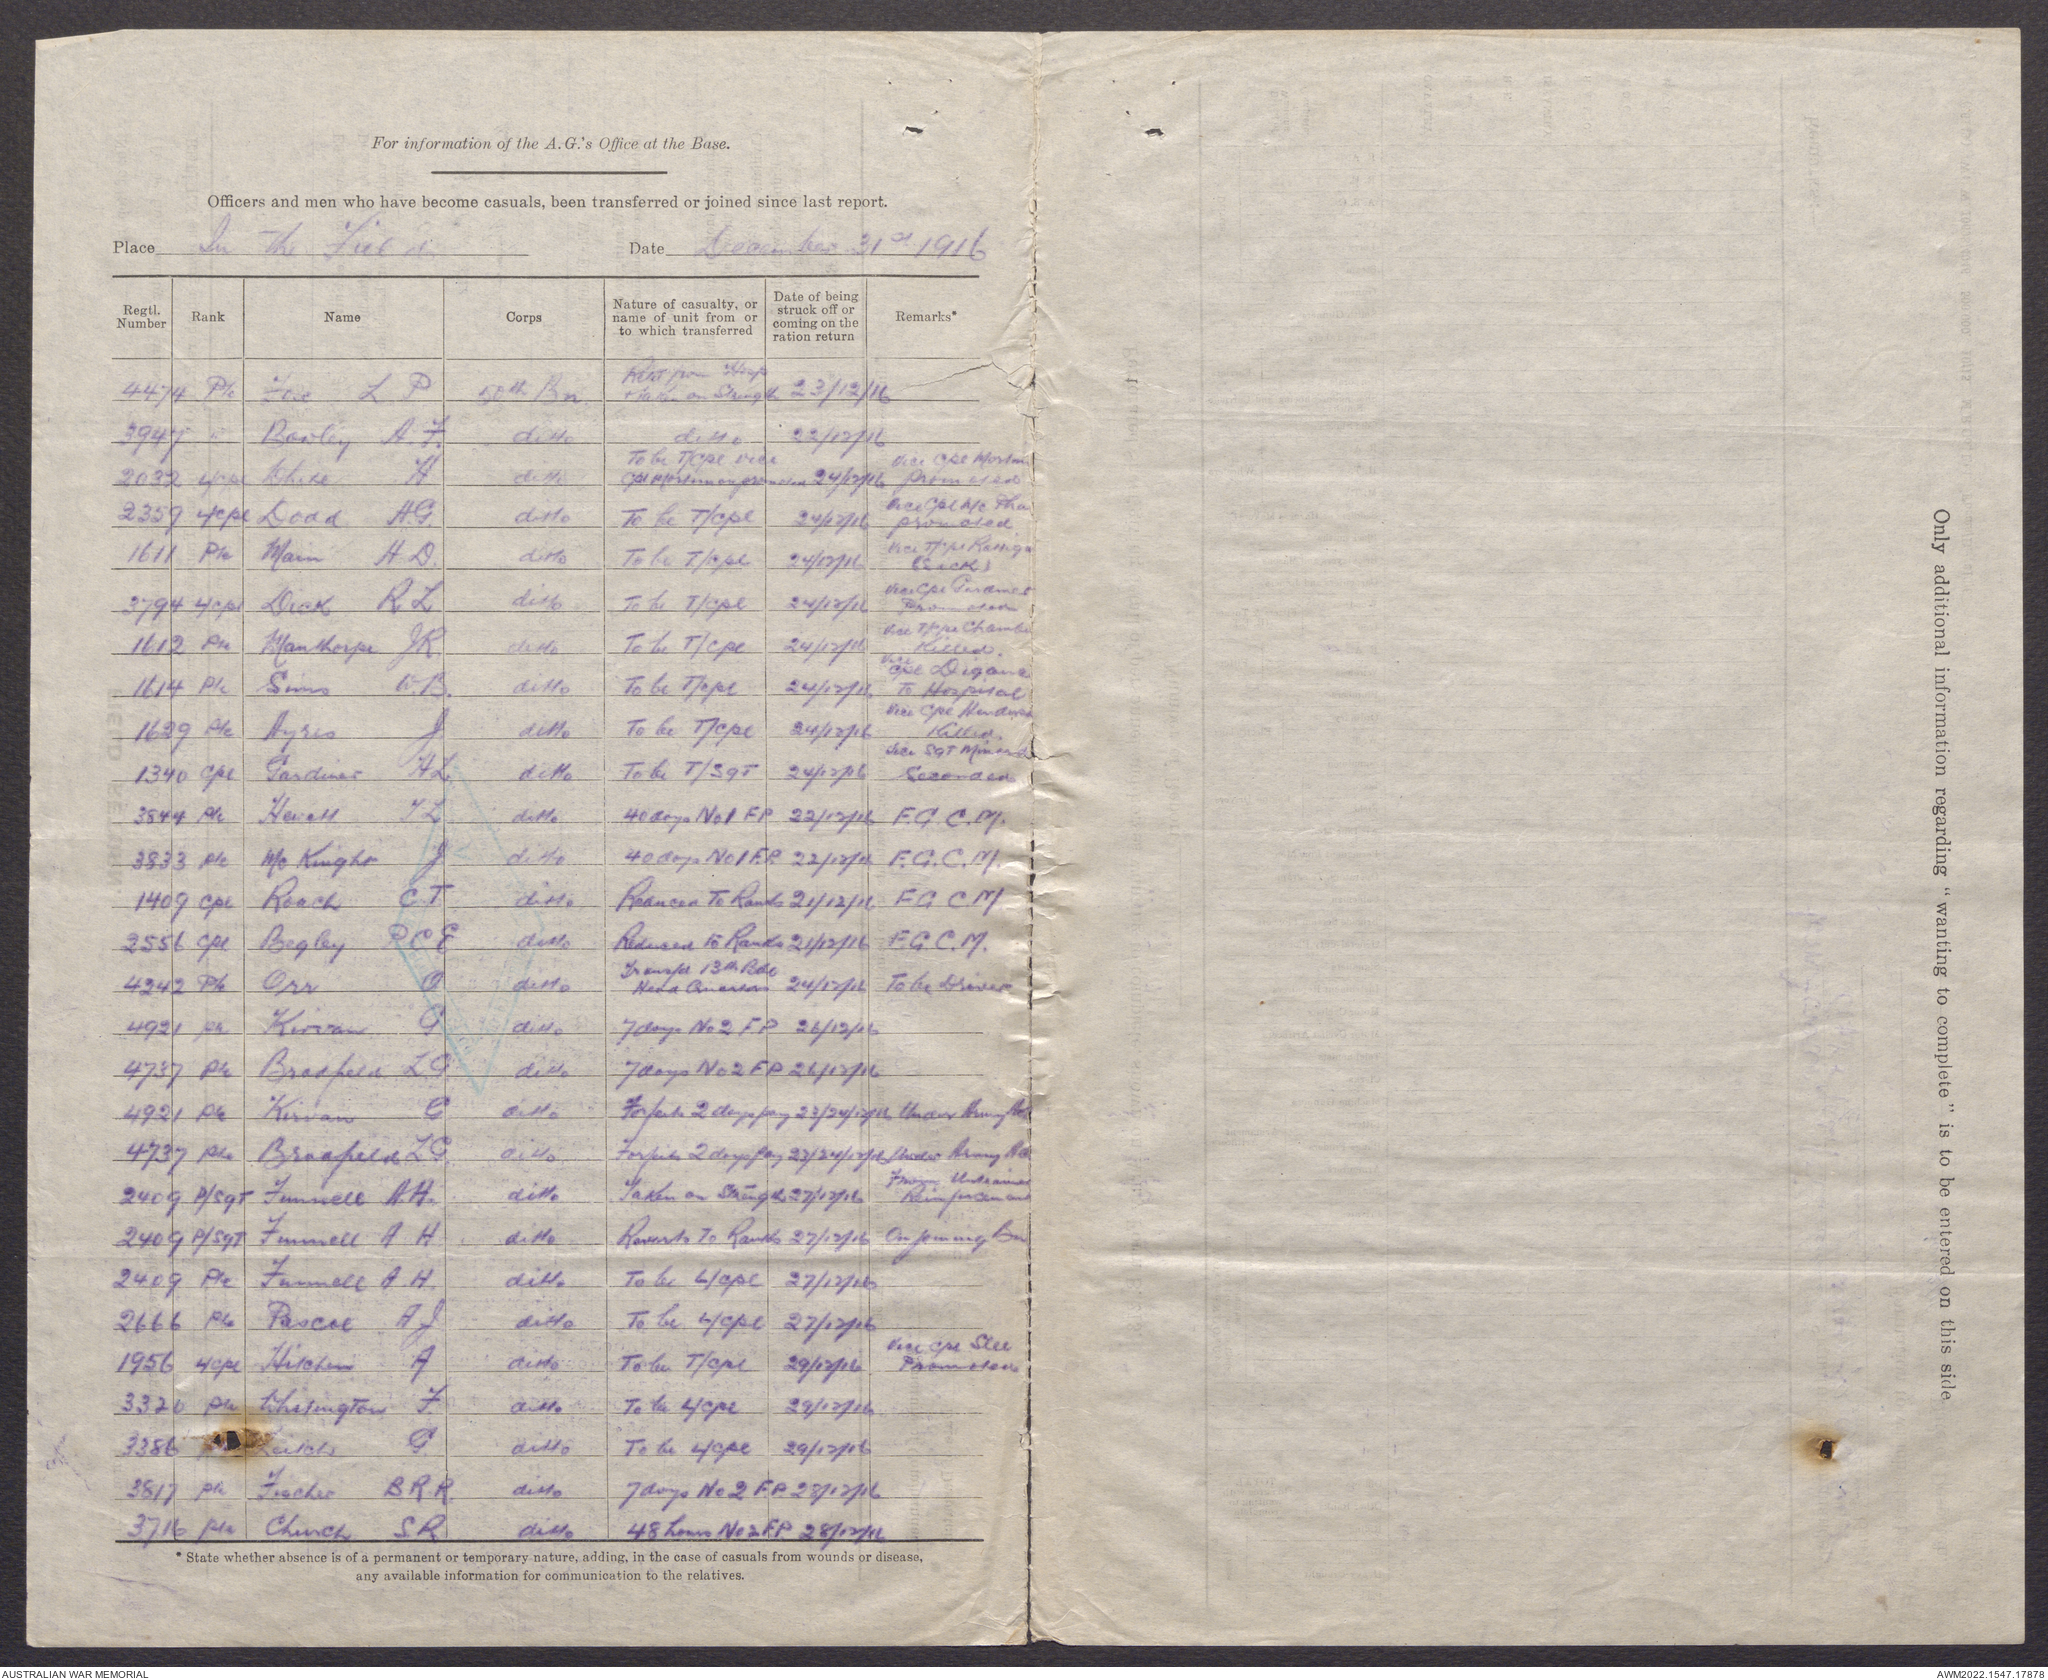 For information of the A.G.'s Office at the Base.
Officers and men who have become casuals, been transferred or joined since last report.
Place In the Field Date December 31st 1916
Regtl. Number Rank Name Corps Nature of casualty, or name of unit from or to which transferred Date of being struck off or coming on the ration return Remarks*
4474 Pte Fox L P 50th Bn. Retd from Hosp + taken on Strength 23/12/16
3947 " Bowley A. F. ditto ditto 22/12/16
2032 L/Cpl White H ditto To be T/Cpl vice Cpl Mortimer promoted 24/12/16 vice Cpl promoted
2359 L/Cpl Dodd H.G ditto To be T/Cpl 24/12/16 vice Cpl promoted
1611 Pte Main H D. ditto To be T/Cpl 24/12/16 vice T/Cpl (Sick)
3794 L/Cpl Dick R L ditto To be T/Cpl 24/12/16 vice Cpl Gardiner Promoted
1612 Pte Manthorpe J R. ditto To be T/Cpl 24/12/16 vice T/Cpl Killed.
1614 Pte Sims W B. ditto To be T/Cpl 24/12/16 vice Cpl To Hospital
1629 Pte Ayres J ditto To be T/Cpl 24/12/16 vice Cpl Killed.
1340 Cpl Gardiner H L. ditto To be T/Sgt 24/12/16 vice Sgt Seconded
3844 Pte L ditto 40 days No 1 F P 22/12/16 F. G. C. M.
3833 Pte McKnight J ditto 40 days No 1 F.P. 22/12/16 F. G. C. M.
1409 Cpl Roach C T ditto Reduced To Ranks 21/12/16 F G C M
2556 Cpl Begley P C E ditto Reduced To Ranks 21/12/16 F. G. C. M.
4242 Pte Orr O ditto Transfd 13th Bde Head Quarters 24/12/16 To be Driver
4921 Pte Kirvan G ditto 7 days No 2 F P 26/12/16
4737 Pte Broadfield L G ditto 7 days No 2 F P 26/12/16
4921 Pte Kirvan G ditto Forfeits 2 days pay 23/24/12/16 Under Army
4737 Pte Broadfield L G. ditto Forfeits 2 days pay 23/24/12/16 Under Army
2409 P/Sgt Funnell A. H. ditto Taken on Strength 27/12/16 From
2409 P/Sgt Funnell A H ditto Reverts To Ranks 27/12/16 On joining Bn
2409 Pte Funnell A H. ditto To be L/Cpl 27/12/16
2666 Pte Pascoe A J ditto To be L/Cpl 27/12/16
1956 L/Cpl Hitchin A ditto To be T/Cpl 29/12/16 vice Cpl Promoted
3320 Pte Whisington F ditto To be L/Cpl 29/12/16
3386 G ditto To be L/Cpl 29/12/16
3817 Pte Fischer B R. R. ditto 7 days No 2 F P 28/12/16
3716 Pte Church S R ditto 48 hours No 2 F.P. 28/12/16
* State whether absence is of a permanent or temporary nature, adding, in the case of casuals from wounds or disease,
any available information for communication to the relatives.
Only additional information regarding "wanting to complete" is to be entered on this side.
AUSTRALIAN WAR MEMORIAL
AWM2022.1547.17878